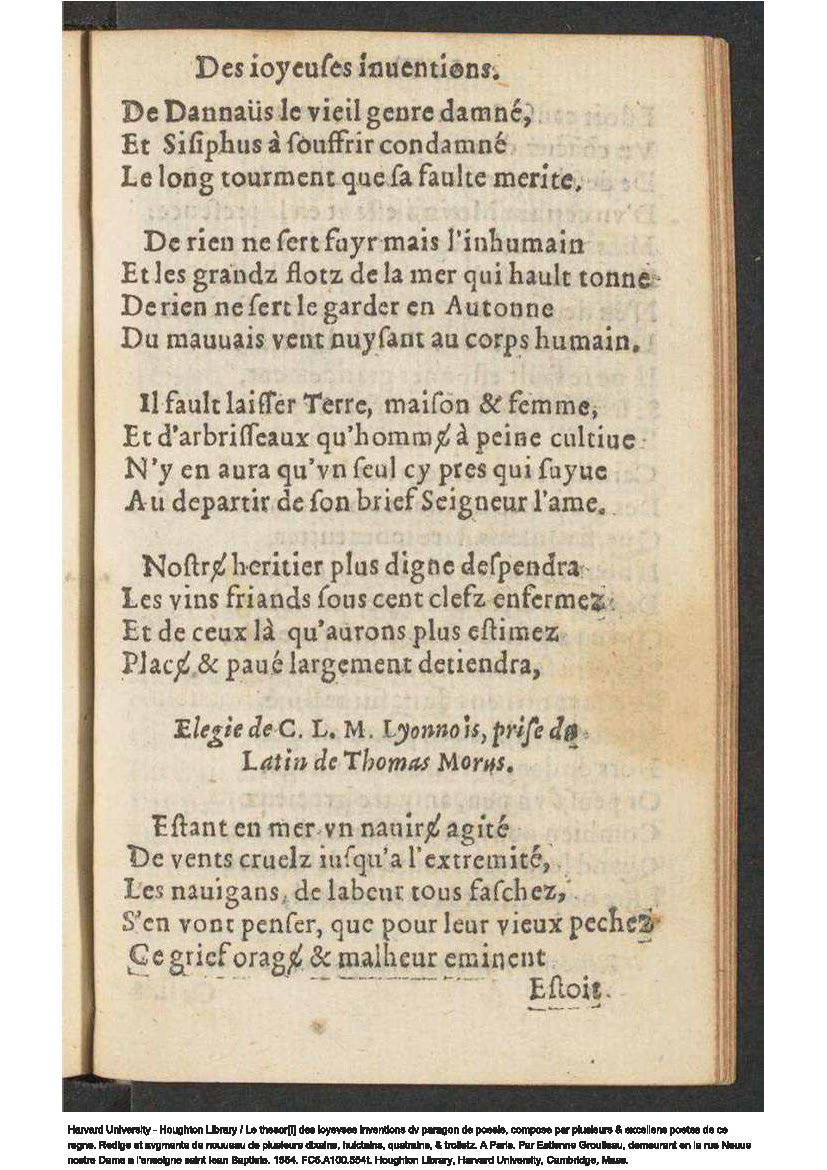 Des ioyeuſes inuentions.
De Dannaüs le vieil genre damné,
Et Siſiphus à ſouffrir condamné
Le long tourment que ſa faulte merite.
De rien ne ſert fuyr mais l'inhumain
Et les grandz flotz de la mer qui hault tonne
De rien ne ſert le garder en Autonne
Du mauuais vent nuyſant au corps humain.
Il fault laiſſer Terre, maiſon & femme,
Et d'arbriſſeaux qu'hommɇ à peine cultiue
N'y en aura qu'vn ſeul cy pres qui ſuyue
Au departir de ſon brief Seigneur l'ame.
Noſtrɇ heritier plus digne deſpendra
Les vins friands ſous cent clefz enfermez
Et de ceux là qu'aurons plus eſtimez
Placɇ & paué largement detiendra,
Elegie de C. L. M. Lyonnois, priſe du
Latin de Thomas Morus.
Eſtant en mer vn nauirɇ agité
De vents cruelz iuſqu'a l'extremité,
Les nauigans, de labeur tous faſchez,
S'en vont penſer, que pour leur vieux pechez
Ce grief oragɇ & malheur eminent
Eſtoit.
Harvard University - Houghton Library / Le thesor[i] des ioyevses inventions dv paragon de poesie, compose par plusieurs & excellens poetes de ce
regne. Redige et avgmente de nouueau de plusieurs dixains, huictains, quatrains, & trolietz. A Paris. Par Estienne Groulleau, demeurant en la rue Neuue
nostre Dame a l'enseigne saint Iean Baptiste. 1554. FC5.A100.554t. Houghton Library, Harvard University, Cambridge, Mass.